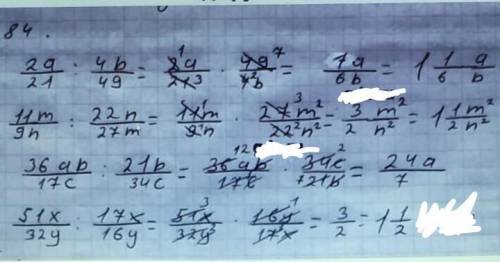 84.
2a/21 : 4b/49 = 2a/21 · 49/4b = 7a/6b = 1 1/6 a/b
11m/9n : 22n/27m = 11m/9n · 27m²/22n² = 3/2 m²/n² = 1 1/2 m²/n²
36ab/17c : 21b/34c = 36ab/17c · 34c/21b = 24a/7
51x/32y : 17x/16y = 51x/32y · 16y/17x = 3/2 = 1 1/2